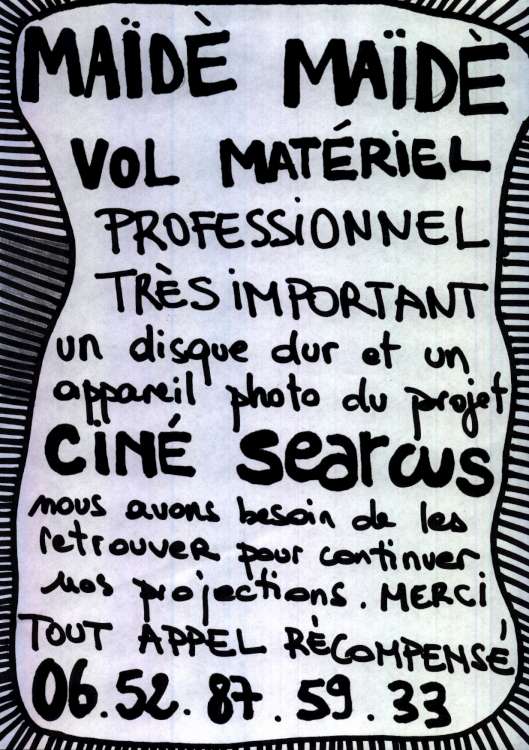 MAÏDÈ MAÏDÈ
VOL MATÉRIEL
PROFESSIONNEL
TRÈS IMPORTANT
un disque dur et un
appareil photo du projet
CINÉ searcus
nous avons besoin de les
retrouver pour continuer
nos projections. MERCI
TOUT APPEL RÉCOMPENSÉ
06.52.87.59.33